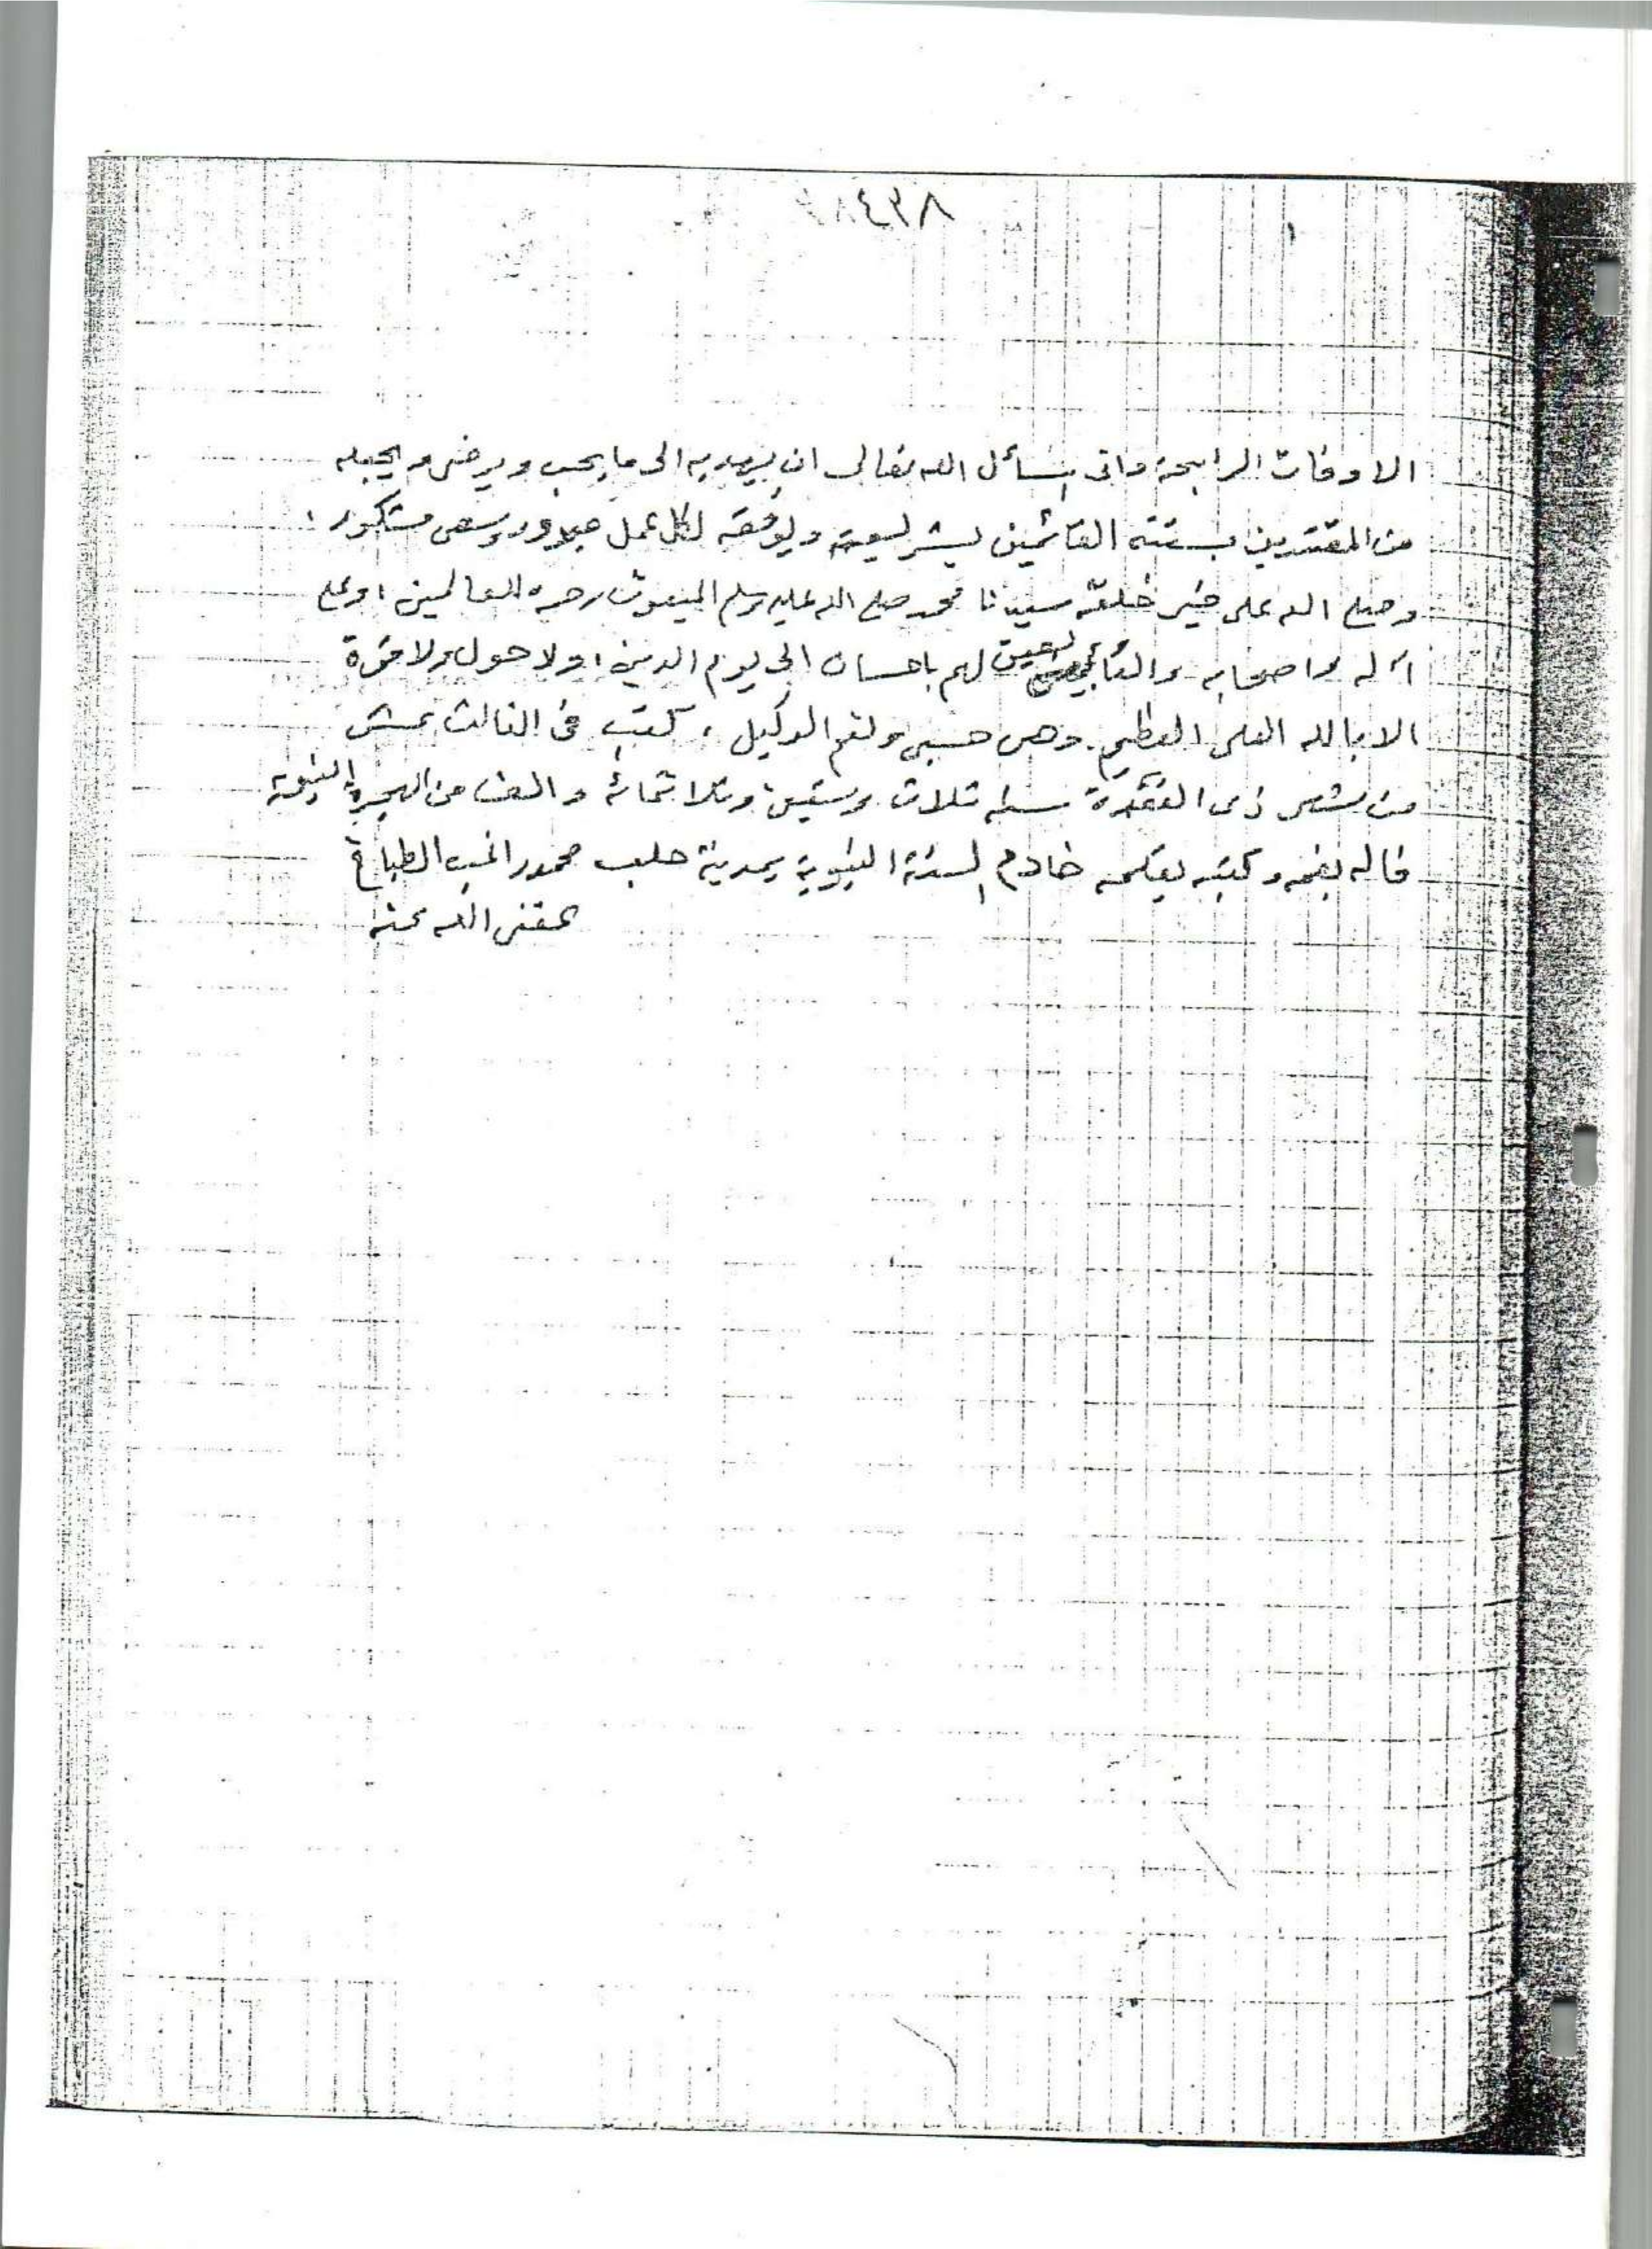 الاوقات الرابحة وانى اسأل الله تعالى ان يهديه الى ما يحب ويرضى ويجعله
من المقتدين بسنته القائمين بشريعته ويوفقه لكل عمل مبرور وسعى مشكور ،
وصلى الله على خير خلقه سيدنا محمد صلى الله عليه وسلم المبعوث رحمة للعالمين ، وعلى
آله واصحابه والتابعين لهم باحسان الى يوم الدين ، ولا حول ولا قوة
الا بالله العلى العظيم . وهو حسبى ونعم الوكيل ، كتب فى الثالث عشر
من شهر ذى القعدة سنة ثلاث وستين وثلاثمائة والف من الهجرة النبوية
قاله بفمه وكتبه بقلمه خادم السنة النبوية بمدينة حلب محمد راغب الطباخ
عفى الله عنه